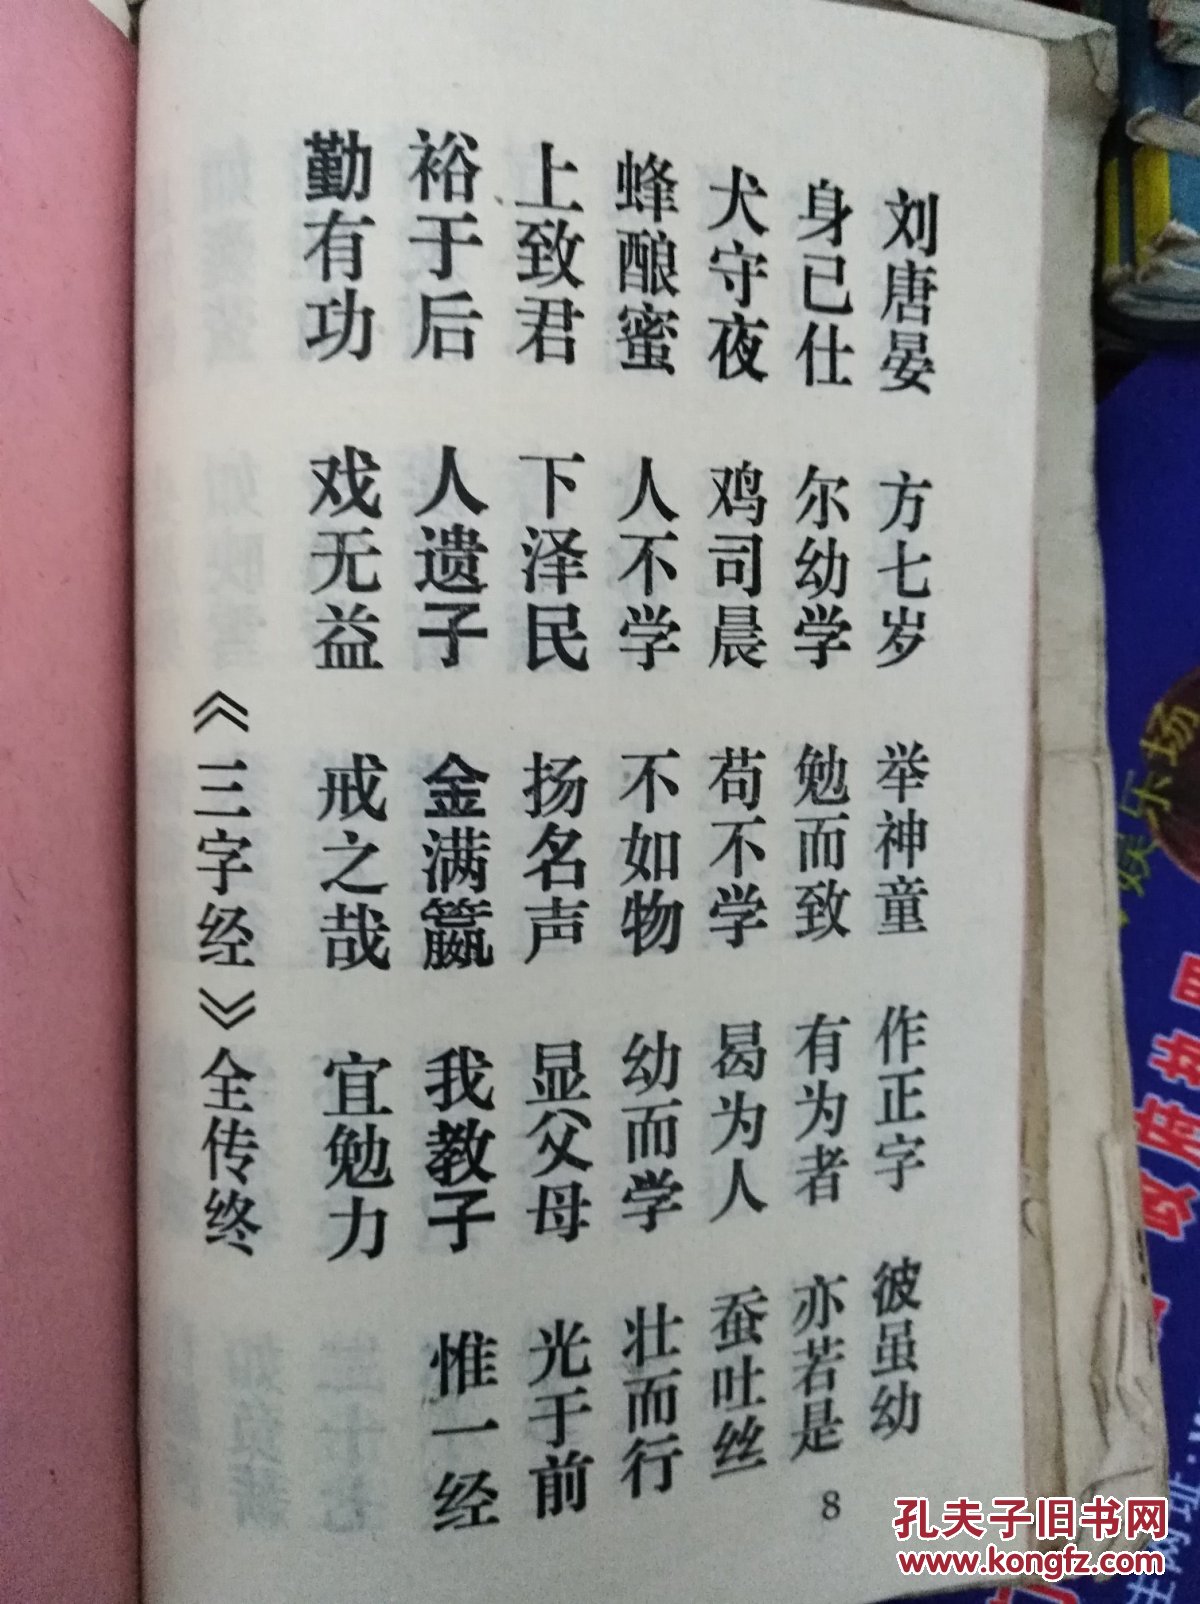 刘唐晏 方七岁 举神童 作正字 彼虽幼
身己仕 尔幼学 勉而致 有为者 亦若是
犬守夜 鸡司晨 苟不学 曷为人 蚕吐丝
蜂酿蜜 人不学 不如物 幼而学 壮而行
上致君 下泽民 扬名声 显父母 光于前
裕于后 人遗子 金满籯 我教子 惟一经
勤有功 戏无益 戒之哉 宜勉力
《三字经》全传终
8
孔夫子旧书网
www.kongfz.com
娱乐场